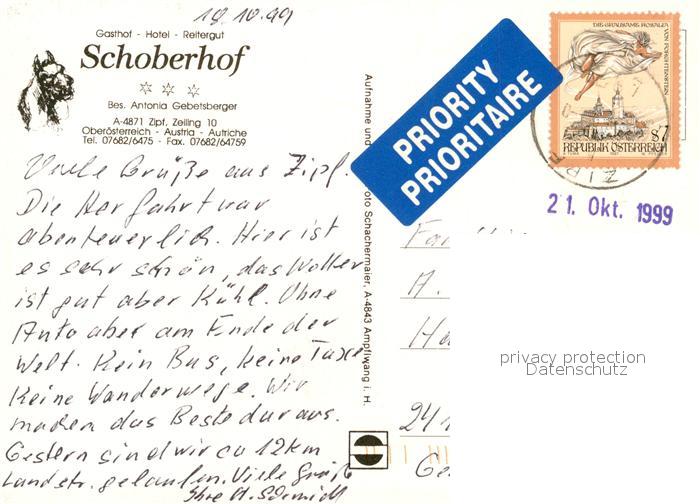 18.10.99
Gasthof - Hotel - Reitergut
Schoberhof
Bes. Antonia Gebetsberger
A-4871 Zipf, Zeiling 10
Oberösterreich - Austria - Autriche
Tel. 07682/6475 - Fax. 07682/64759
Viele Grüße aus Zipf.
Die Herfahrt war
abenteuerlich. Hier ist
es sehr schön, das Wetter
ist gut aber kühl. Ohne
Auto aber am Ende der
Welt. Kein Bus, keine Taxe
keine Wanderwege. Wir
machen das Beste daraus.
Gestern sind wir ca 12 km
Landstr. gelaufen. Viele Grüße
Ihre H. Schmidt
Aufnahme und
oto Schachermaier, A-4843 Ampflwang i. H.
PRIORITY
PRIORITAIRE
DIE GRAUSAME ROSALIA
VON FORCHTENSTEIN
S 7
REPUBLIK ÖSTERREICH
ZIPF
21. Okt. 1999
Fa
A.
Ha
241
Ge
privacy protection
Datenschutz